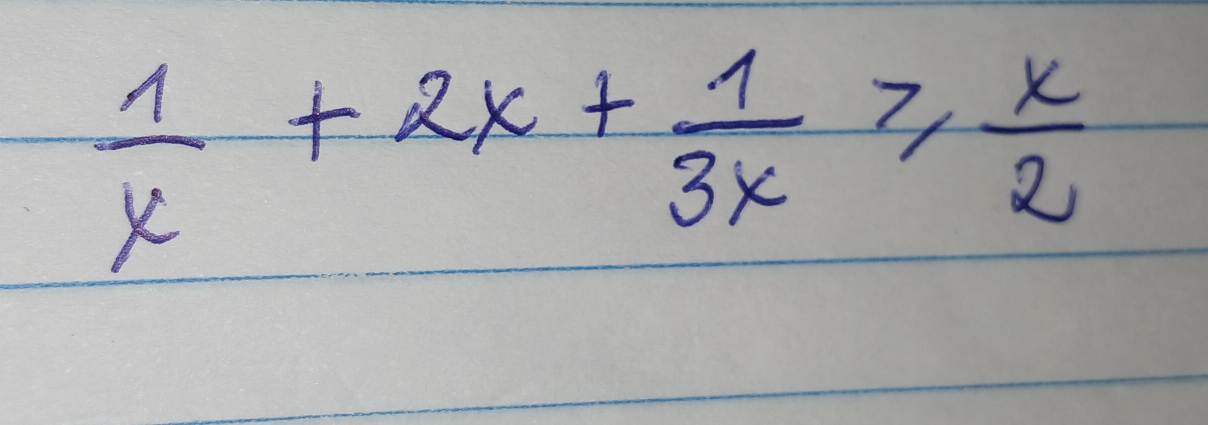 1/x + 2x + 1/3x ⩾ x/2